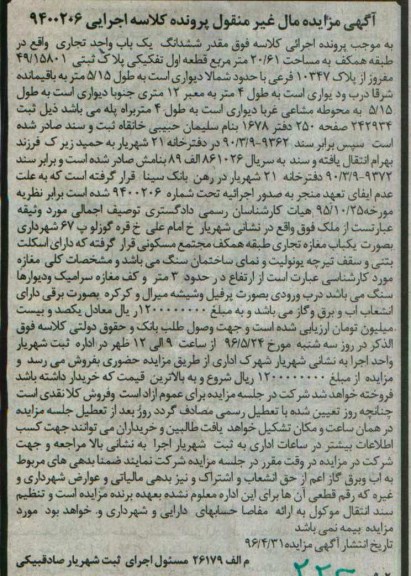 آگهی مزایده مال غیر منقول پرونده کلاسه اجرایی ۹۴۰۰۲۰۶
به موجب پرونده اجرائی کلاسه فوق مقدر ششدانگ یک باب واحد تجاری واقع در
طبقه همکف به مساحت ۲۰/۶۱ متر مربع قطعه اول تفکیکی پلاک ثبتی ۴۹/۱۵۸۰۱
مفروز از پلاک ۱۰۳۴۷ فرعی با حدود شمالا دیواری است به طول ۵/۱۵ متر به باقیمانده
شرقا درب و دیواری است به طول ۴ متر به معبر ۱۲ متری جنوبا دیواری است به طول
۵/۱۵ به محوطه مشاعی غربا دیواری است به طول ۴ متربراه پله می باشد ذیل ثبت
۲۴۲۹۳۴ صفحه ۲۵۰ دفتر ۱۶۷۸ بنام سلیمان حبیبی خانقاه ثبت و سند صادر شده
است سپس برابر سند ۹۳۶۲-۹۰/۳/۹ در دفترخانه ۲۱ شهریار به حمید زیرک فرزند
بهرام انتقال یافته و سند به سریال ۸۶۱۰۲۶ الف ۸۹ بنامش صادر شده است و برابر سند
۹۳۷۲-۹۰/۳/۹ دفترخانه ۲۱ شهریار در رهن بانک سینا قرار گرفته است که به علت
عدم ایفای تعهد منجر به صدور اجرائیه تحت شماره ۹۴۰۰۲۰۶ شده است برابر نظریه
مورخه۹۵/۱۰/۲۵ هیات کارشناسان رسمی دادگستری توصیف اجمالی مورد وثیقه
عبارتست از ملک فوق واقع در نشانی شهریار خ امام علی خ قره گوزلو پ ۶۷ شهرداری
بصورت یکباب مغازه تجاری طبقه همکف مجتمع مسکونی قرار گرفته که دارای اسکلت
بتنی و سقف تیرچه یونولیت و نمای ساختمان سنگ می باشد و مشخصات کلی مغازه
مورد کارشناسی عبارت است از ارتفاع در حدود ۳ متر و کف مغازه سرامیک ودیوارها
سنگ می باشد درب ورودی بصورت پرفیل وشیشه میرال و کرکره بصورت برقی دارای
انشعاب آب و برق وگاز می باشد و به مبلغ ۱۲۰۰۰۰۰۰۰۰ریال معادل یکصد و بیست
میلیون تومان ارزیابی شده است و جهت وصول طلب بانک و حقوق دولتی کلاسه فوق
الذکر در روز سه شنبه مورخ ۹۶/۵/۲۴ از ساعت ۹ الی ۱۲ ظهر در اداره ثبت شهریار
واحد اجرا به نشانی شهریار شهرک اداری از طریق مزایده حضوری بفروش می رسد و
مزایده از مبلغ ۱۲۰۰۰۰۰۰۰۰ ریال شروع و به بالاترین قیمت که خریدار داشته باشد
فروخته خواهد شد شرکت در جلسه مزایده برای عموم آزاد است وفروش کلا نقدی است
چنانچه روز تعیین شده با تعطیل رسمی مصادف گردد روز بعد از تعطیل جلسه مزایده
در همان ساعت و مکان تشکیل خواهد یافت طالبین و خریداران می توانند جهت کسب
اطلاعات بیشتر در ساعات اداری به ثبت شهریار اجرا به نشانی بالا مراجعه و جهت
شرکت در مزایده در وقت مقرر در جلسه مزایده شرکت نمایند ضمنا بدهی های مربوط
به آب وبرق گاز اعم از حق انشعاب و اشتراک و نیز بدهی مالیاتی و عوارض شهرداری و
غیره که رقم قطعی آن ها برای این اداره معلوم نشده بعهده برنده مزایده است و تنظیم
سند انتقال موکول به ارائه مفاصا حسابهای دارایی و شهرداری و. خواهد بود مورد
مزایده بیمه نمی باشد
تاریخ انتشار آگهی مزایده ۹۶/۴/۳۱
م الف ۲۶۱۷۹ مسئول اجرای ثبت شهریار صادقبیکی